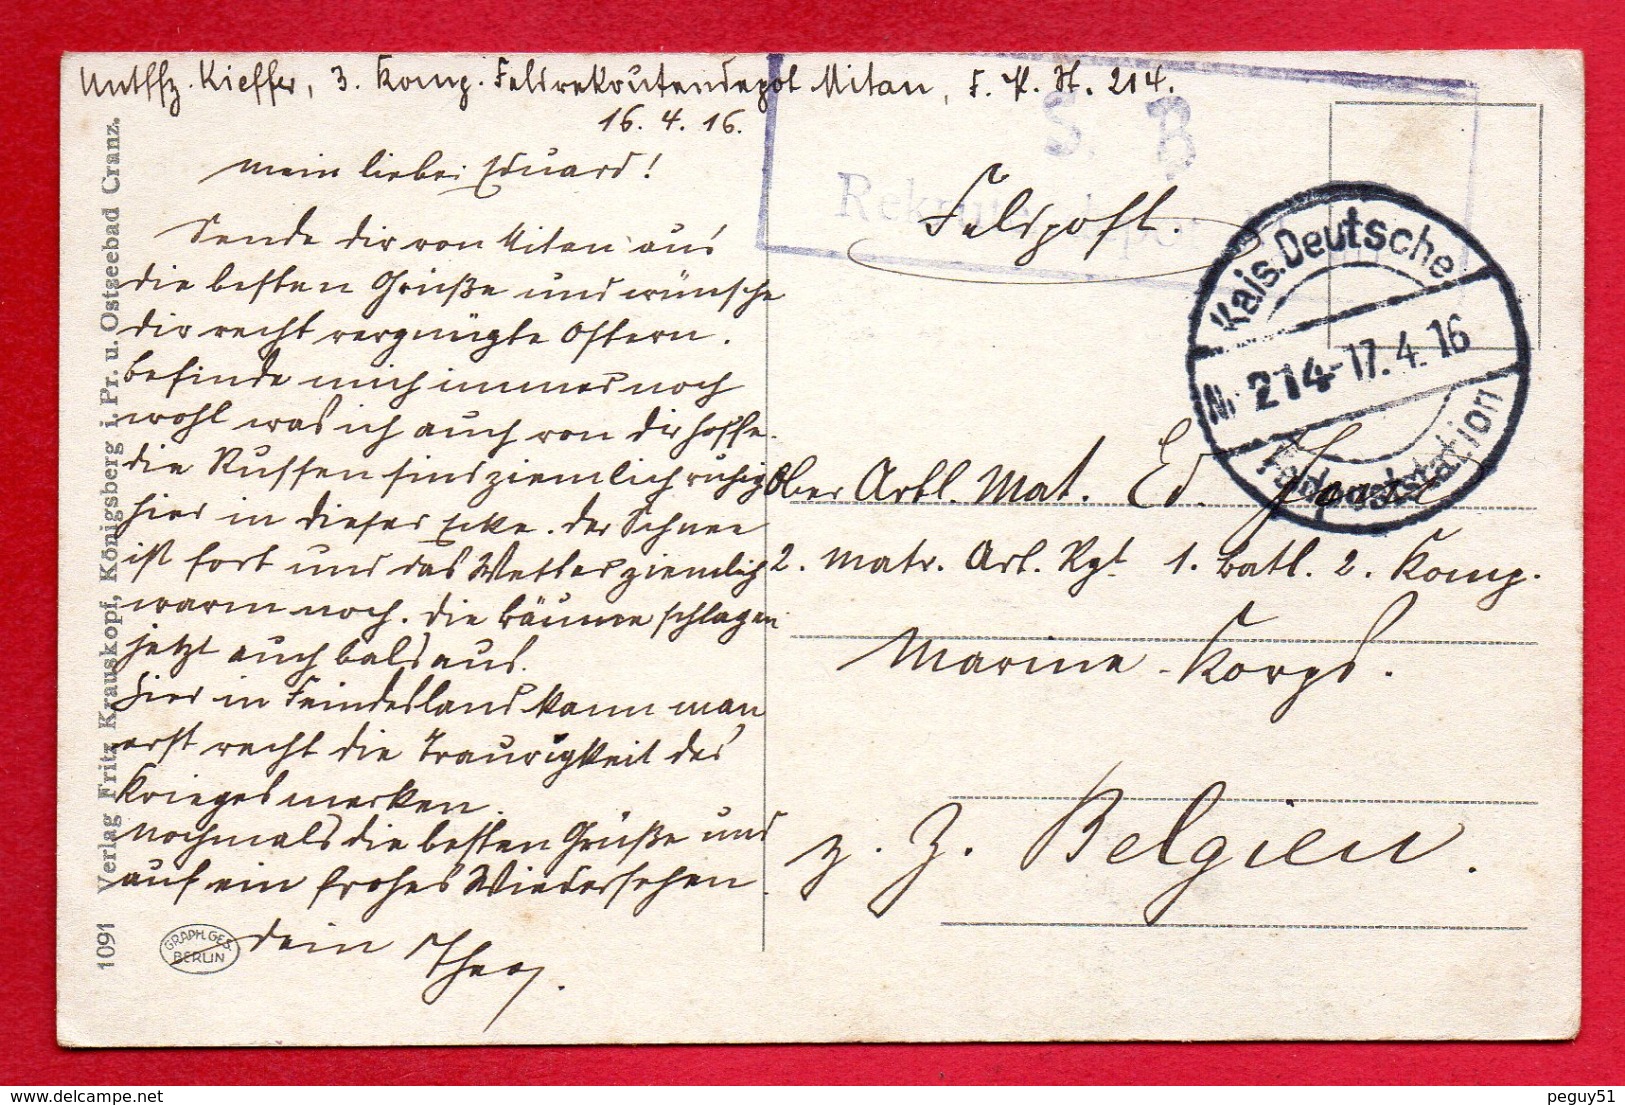 Untffz. Kieffer, 3. Komp. Feldrekrutendepot Mitau, F. P. St. 214.
16. 4. 16.
Mein lieber Eduard!
Sende dir von Mitau aus
die besten Grüße und wünsche
dir recht vergnügte Ostern.
Befinde mich immer noch
wohl was ich auch von dir hoffe.
die Russen sind ziemlich ruhig
hier in dieser Ecke. der Schnee
ist fort und das Wetter ziemlich
warm noch. die Bäume schlagen
jetzt auch bald aus.
Hier in Feindesland kann man
erst recht die Traurigkeit des
Krieges merken.
Nochmals die besten Grüße und
auf ein frohes Wiedersehen.
dein Theo.
1091 Verlag Fritz Krauskopf, Königsberg i. Pr. u. Ostseebad Cranz.
GRAPH. GES. BERLIN
S. B
Feldpost.
Kais. Deutsche
Nr. 214 - 17.4.16
Feldpoststation
Ober Artl. Mat. Ed.
2. Matr. Art. Rgt. 1. Batl. 2. Komp.
Marine-Korps.
z. Z. Belgien.
peguy51